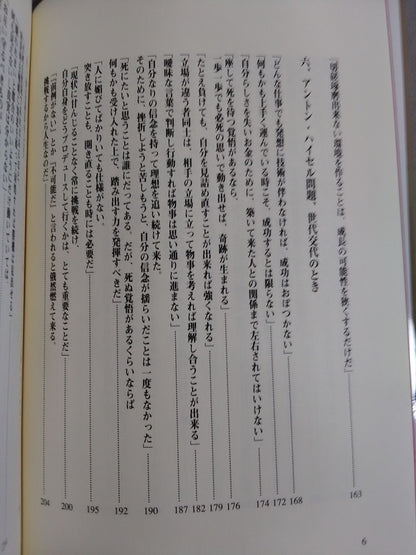 「切磋琢磨出来ない環境を作ることは、成長の可能性を狭くするだけだ」 163
六、アントン・ハイセル問題、世代交代のとき
「どんな仕事でも発想に技術が伴わなければ、成功はおぼつかない」 168
「何もかも上手く運んでいる時こそ、成功するとは限らない」 172
「自分らしさを失いお金のために、築いて来た人との関係まで左右されてはいけない」 174
「座して死を待つ覚悟があるなら、
一歩一歩でも必死の思いで動き出せば、奇跡が生まれる」 176
「たとえ負けても、自分を見詰め直すことが出来れば強くなれる」 179
「立場が違う者同士は、相手の立場に立って物事を考えれば理解し合うことが出来る」 182
「曖昧な言葉で判断し行動すれば物事は思い通りに進まない」 187
「自分なりの信念を持って理想を追い続けて来た。
そのために、挫折しようと苦しもうと、自分の信念が揺らいだことは一度もなかった」 190
「死にたいと思うことは誰にだってある。だが、死ぬ覚悟があるくらいならば
何もかも受け入れた上で、踏み出す力を発揮すべきだ」 192
「人に媚びてばかりいても仕様がない。
突き放すことも、開き直ることも時には必要だ」 195
「現状に甘んじることなく常に挑戦を続け、
自分自身をどうプロデュースして行くかは、とても重要なことだ」 200
「『前例がない』とか『不可能だ』と言われると俄然燃えて来る。
挑戦するから人生なのだ」 204
6